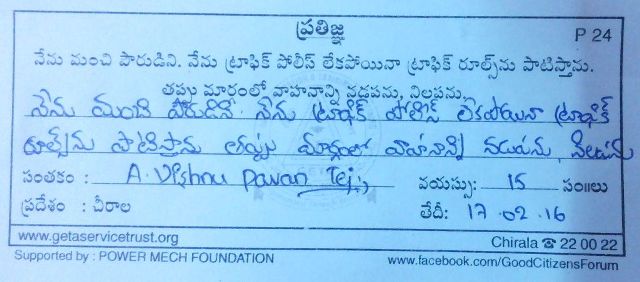 ప్రతిజ్ఞ
P 24
నేను మంచి పౌరుడిని. నేను ట్రాఫిక్ పోలీస్ లేకపోయినా ట్రాఫిక్ రూల్స్‌ను పాటిస్తాను.
తప్పు మార్గంలో వాహనాన్ని నడపను, నిలపను.
నేను మంచి పౌరుడిని నేను ట్రాఫిక్ పోలీస్ లేకపోయినా ట్రాఫిక్
రూల్స్‌ను పాటిస్తాను తప్పు మార్గంలో వాహనాన్ని నడుపను, నిలుపను
సంతకం : A. Vishnu Pavan Tej వయస్సు: 15 సం॥లు
ప్రదేశం : చీరాల తేదీ: 17.02.16
www.getaservicetrust.org Chirala ☎ 22 00 22
Supported by : POWER MECH FOUNDATION www.facebook.com/GoodCitizensForum